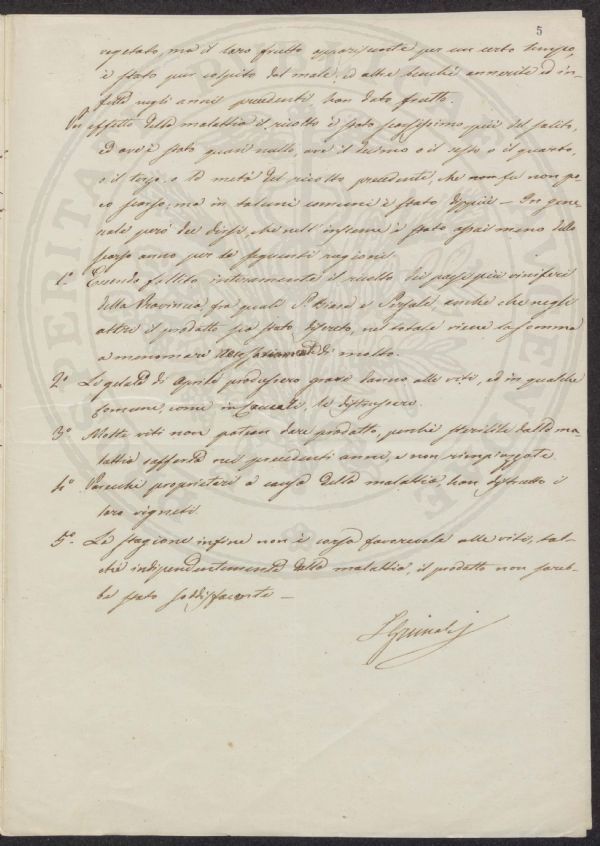 5
vegetato, ma il loro frutto appariscente per un certo tempo,
è stato pur colpito dal male, ed altre benchè annerite ed in-
fette negli anni precedenti han dato frutto.
Per effetto della malattia il ricolto è stato scarsissimo più del solito,
ed ove è stato quasi nullo, ove il decimo o il sesto o il quarto,
o il terzo o la metà del ricolto precedente, che non fu non po-
co scarso, ma in taluni comuni è stato dippiù — In gene-
rale però dee dirsi, che nell'insieme è stato assai meno dello
scorso anno per le seguenti ragioni.
1.° Essendo fallito interamente il ricolto dei paesi più viniferi
della Provincia, fra quali S. Biase e anche che negli
altri il prodotto sia stato discreto, nel totale viene la somma
a menomare necessariamente di molto.
2.° Le gelate di Aprile produssero grave danno alle viti, ed in qualche
Comune, come in le distrussero.
3.° Molte viti non potean dare prodotto, perchè sterilite dalla ma-
lattia sofferta nei precedenti anni, e non rimpiazzate.
4.° Parecchi proprietari a causa della malattia han distrutto i
loro vigneti.
5.° La stagione infine non è corsa favorevole alle viti, tal-
chè indipendentemente dalla malattia, il prodotto non sareb-
be stato soddisfacente —
LGrimaldi